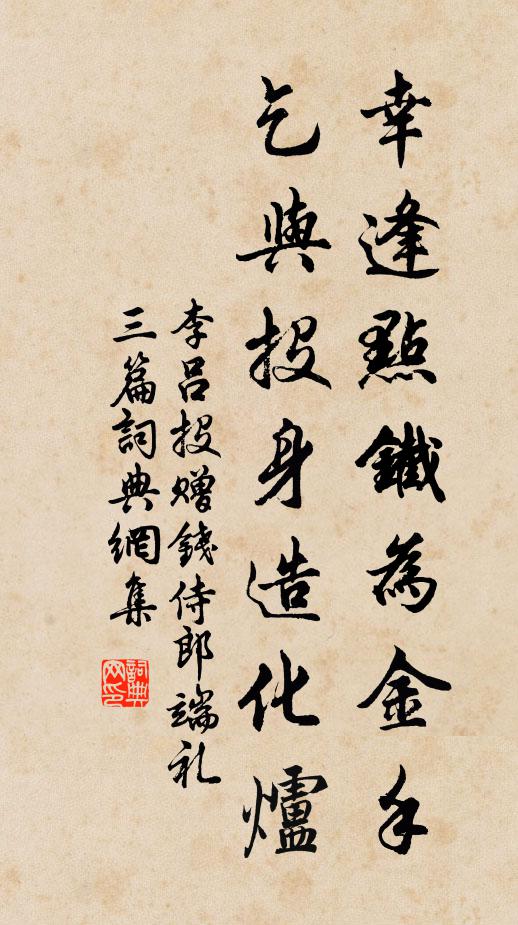 幸逢點鐵為金手
乞與投身造化爐
李呂投贈錢侍郎端礼
三篇詞典網集
詞典
网印